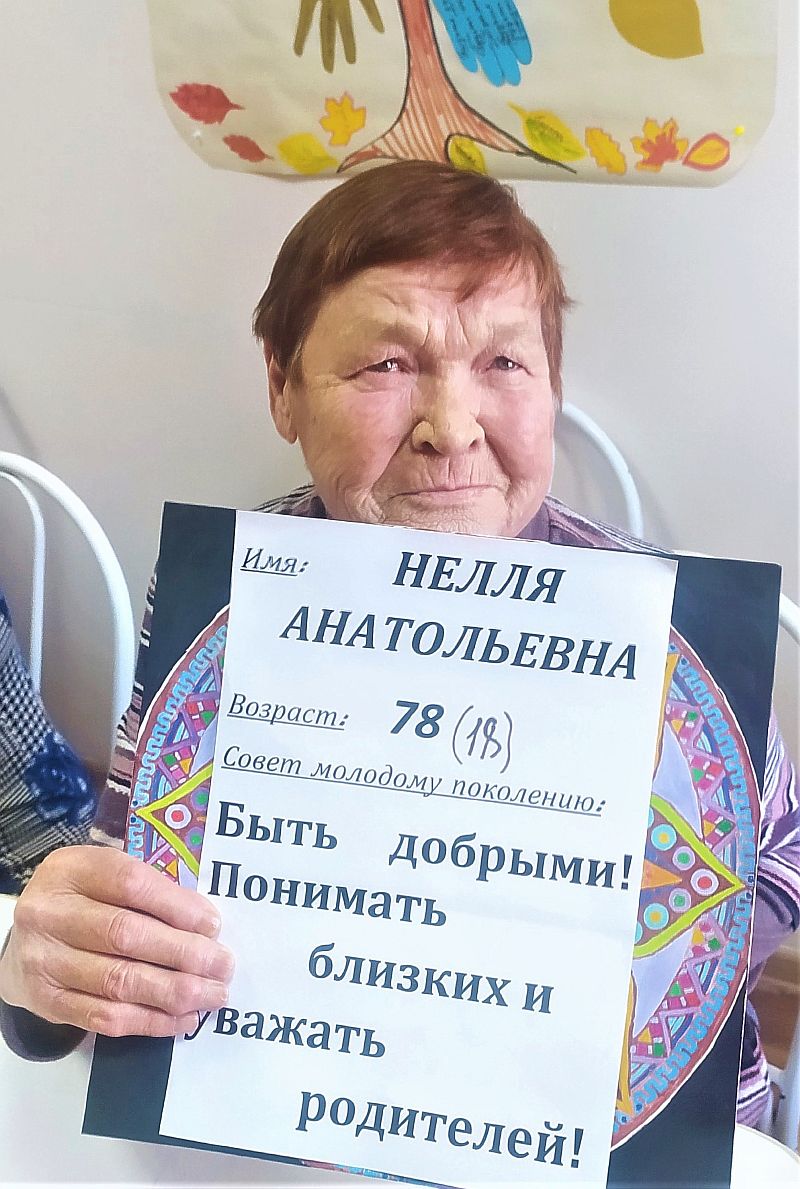 Имя: НЕЛЛЯ
АНАТОЛЬЕВНА
Возраст: 78 (18)
Совет молодому поколению:
Быть добрыми!
Понимать
близких и
уважать
родителей!